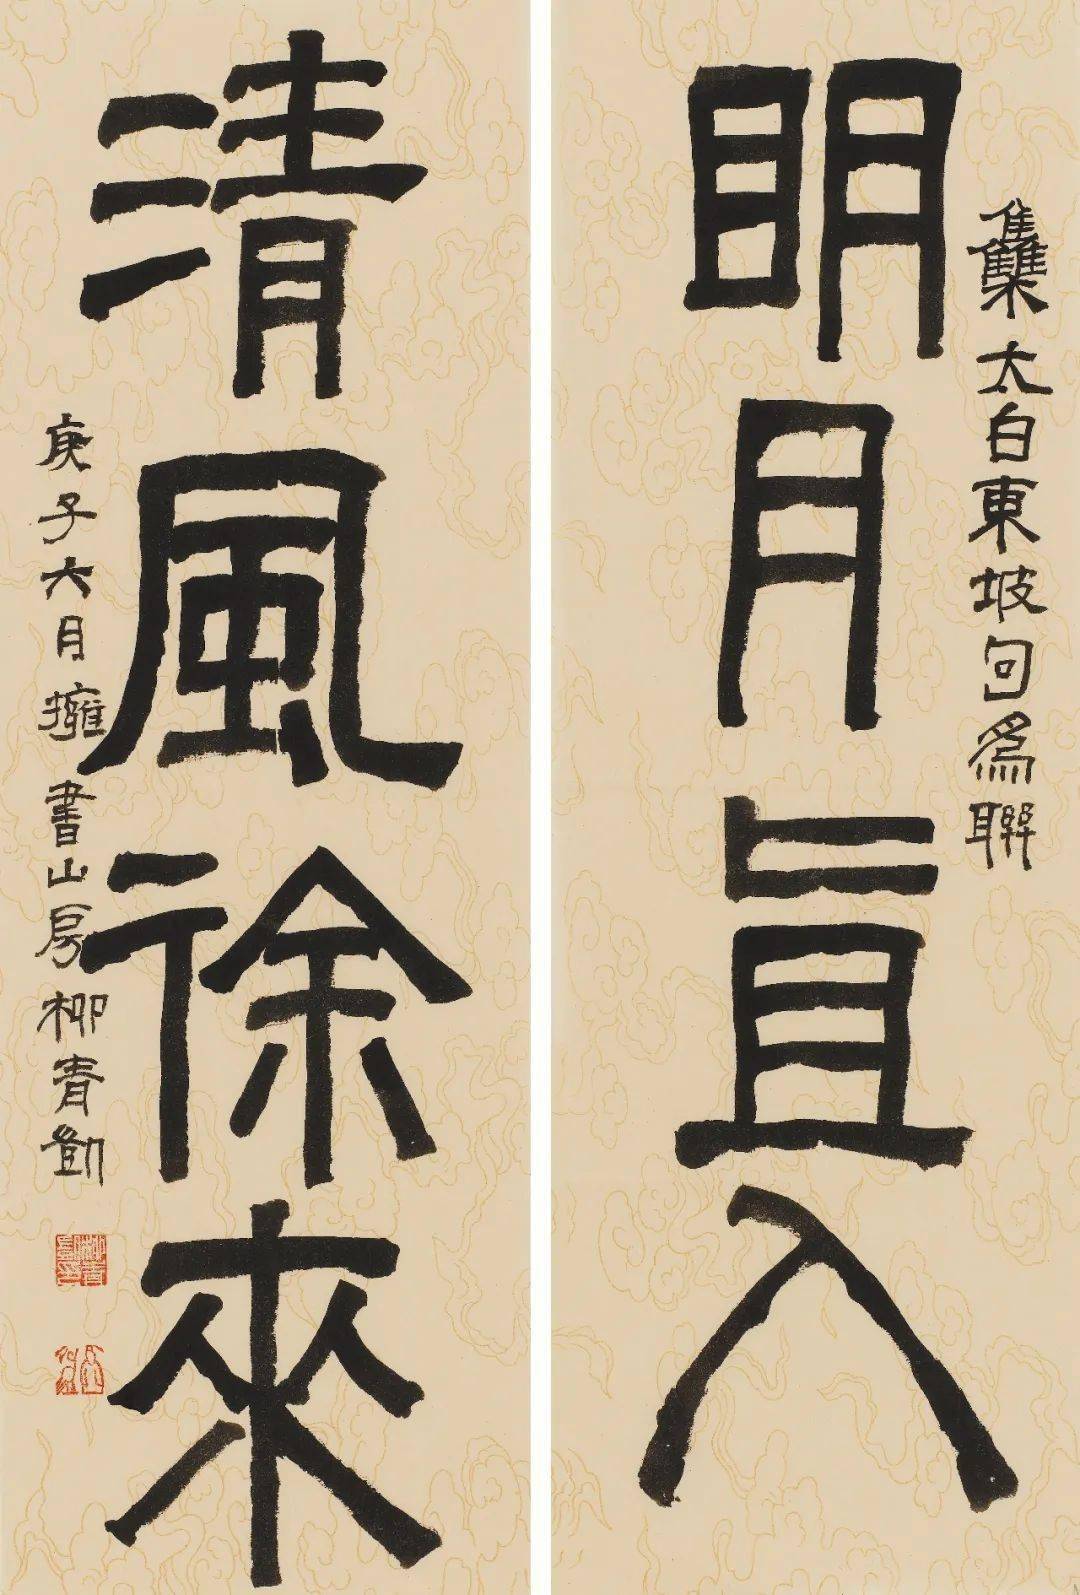 雧太白東坡句爲聯
明月直入
清風徐來
庚子六月擁書山房柳青凱